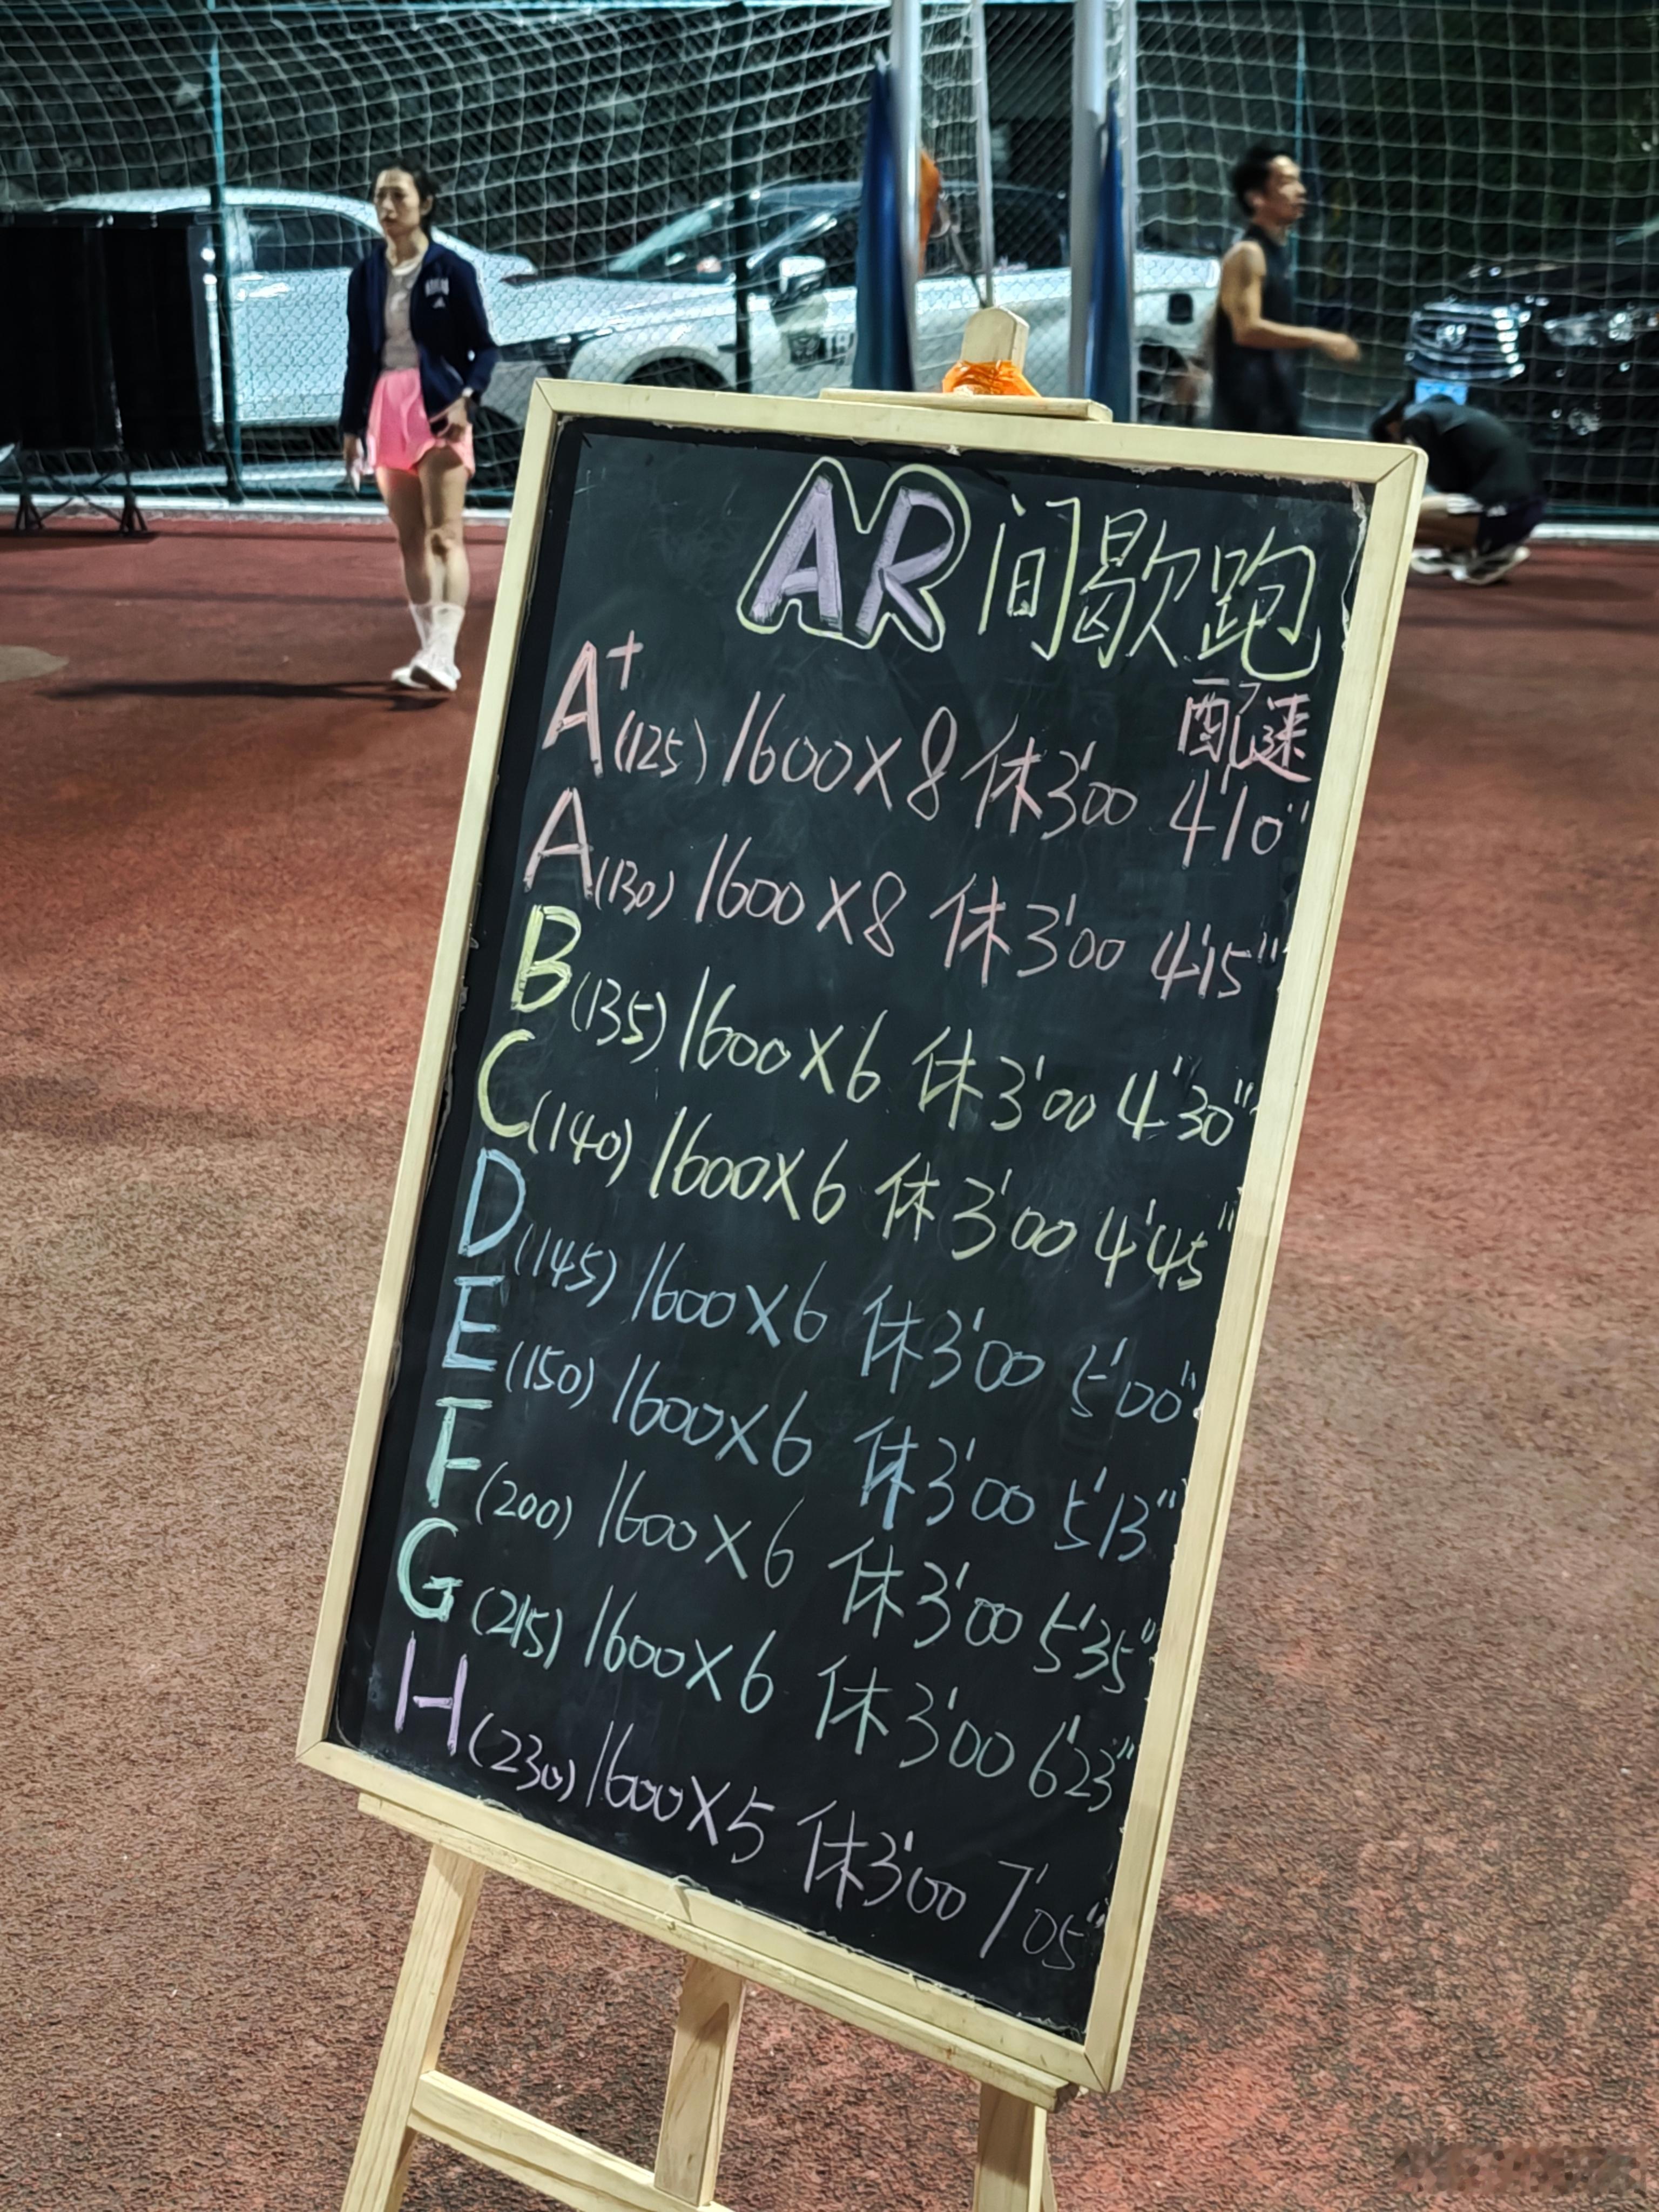 AR间歇跑
配速
A+(125) 1600×8 休3'00 4'10"
A(130) 1600×8 休3'00 4'15"
B(135) 1600×6 休3'00 4'30"
C(140) 1600×6 休3'00 4'45"
D(145) 1600×6 休3'00 5'00"
E(150) 1600×6 休3'00 5'13"
F(200) 1600×6 休3'00 5'35"
G(215) 1600×6 休3'00 6'23"
H(230) 1600×5 休3'00 7'05"